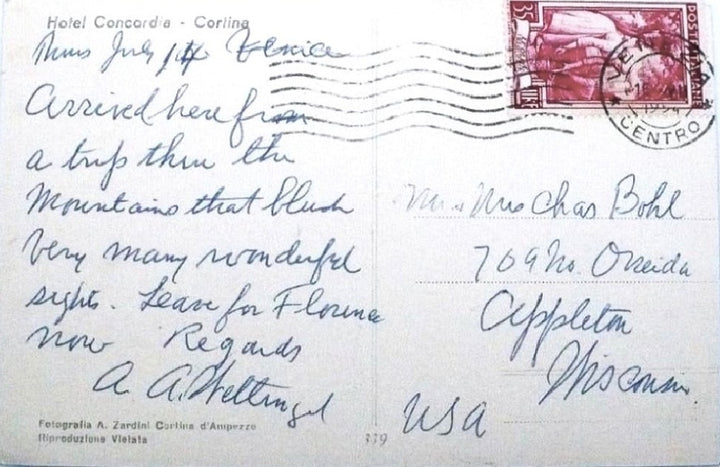 Hotel Concordia - Cortina
Thurs July 14 Venice
Arrived here from
a trip thru the
Mountains that
Very many wonderful
sights. Leave for Florence
now Regards
A. A. Wettengel
Fotografia A. Zardini Cortina d'Ampezzo
Riproduzione Vietata
339
35
LIRE
POSTE ITALIANE
VENEZIA
CENTRO
Mr & Mrs Chas Bohl
709 No. Oneida
Appleton
Wisconsin
USA